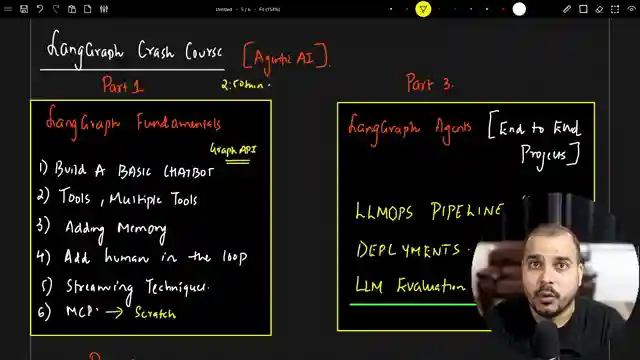 Untitled - 5 / 6 - Fit (154%)
LangGraph Crash Course [Agentic AI].
Part 1
2:50min.
LangGraph Fundamentals
Graph API
1) Build A BASIC CHATBOT
2) Tools, Multiple Tools
3) Adding Memory
4) Add human in the loop
5) Streaming Techniques.
6) MCP. → Scratch
Part 3.
LangGraph Agents [End to End
Projects]
LLMOPS PIPELINE
DEPLYMENTS.
LLM Evaluation